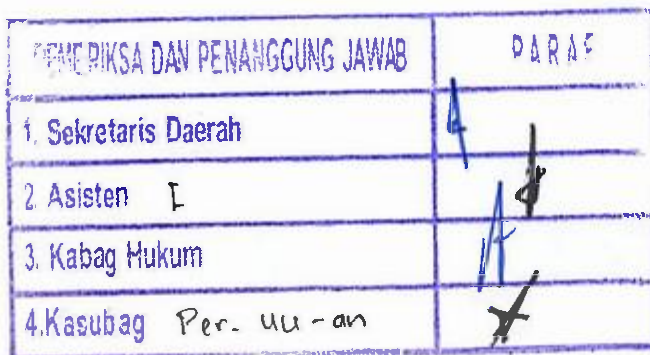 PEMERIKSA DAN PENANGGUNG JAWAB PARAF
1. Sekretaris Daerah
2. Asisten I
3. Kabag Hukum
4.Kasubag Per-uu-an